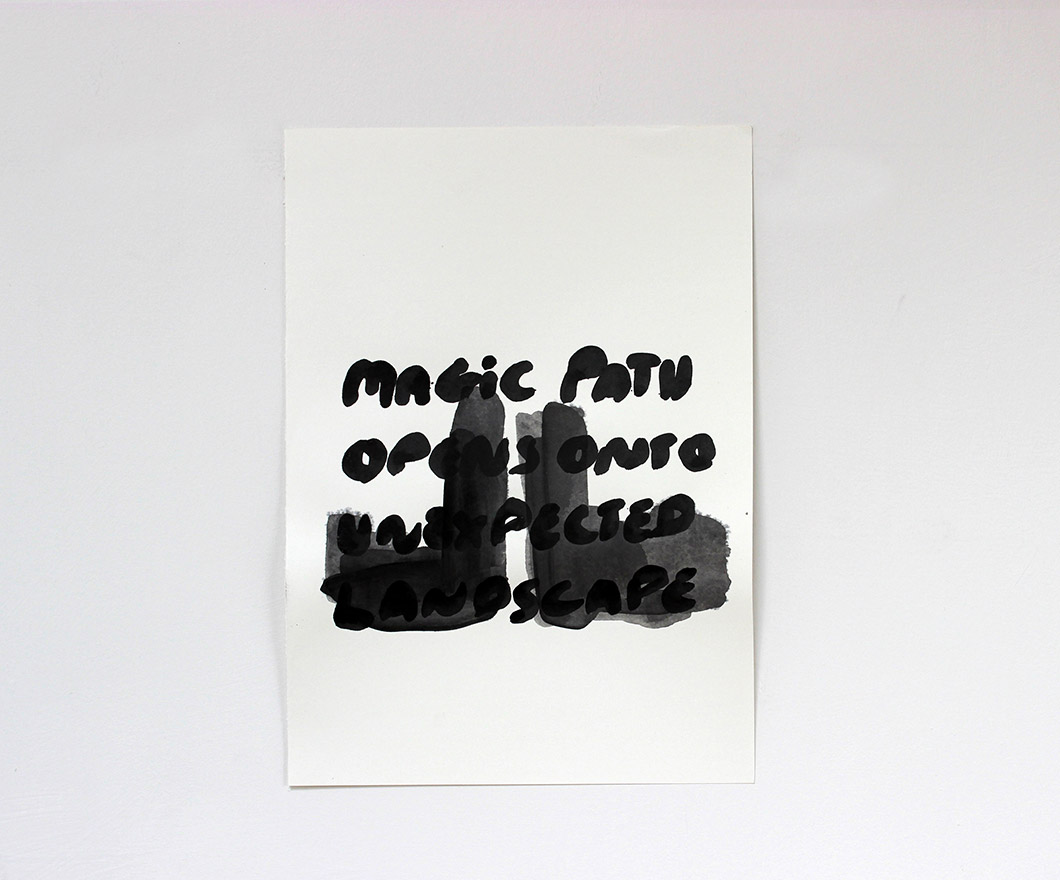 MAGiC PATH
OPENS ONTO
UNEXPECTED
LANDSCAPE